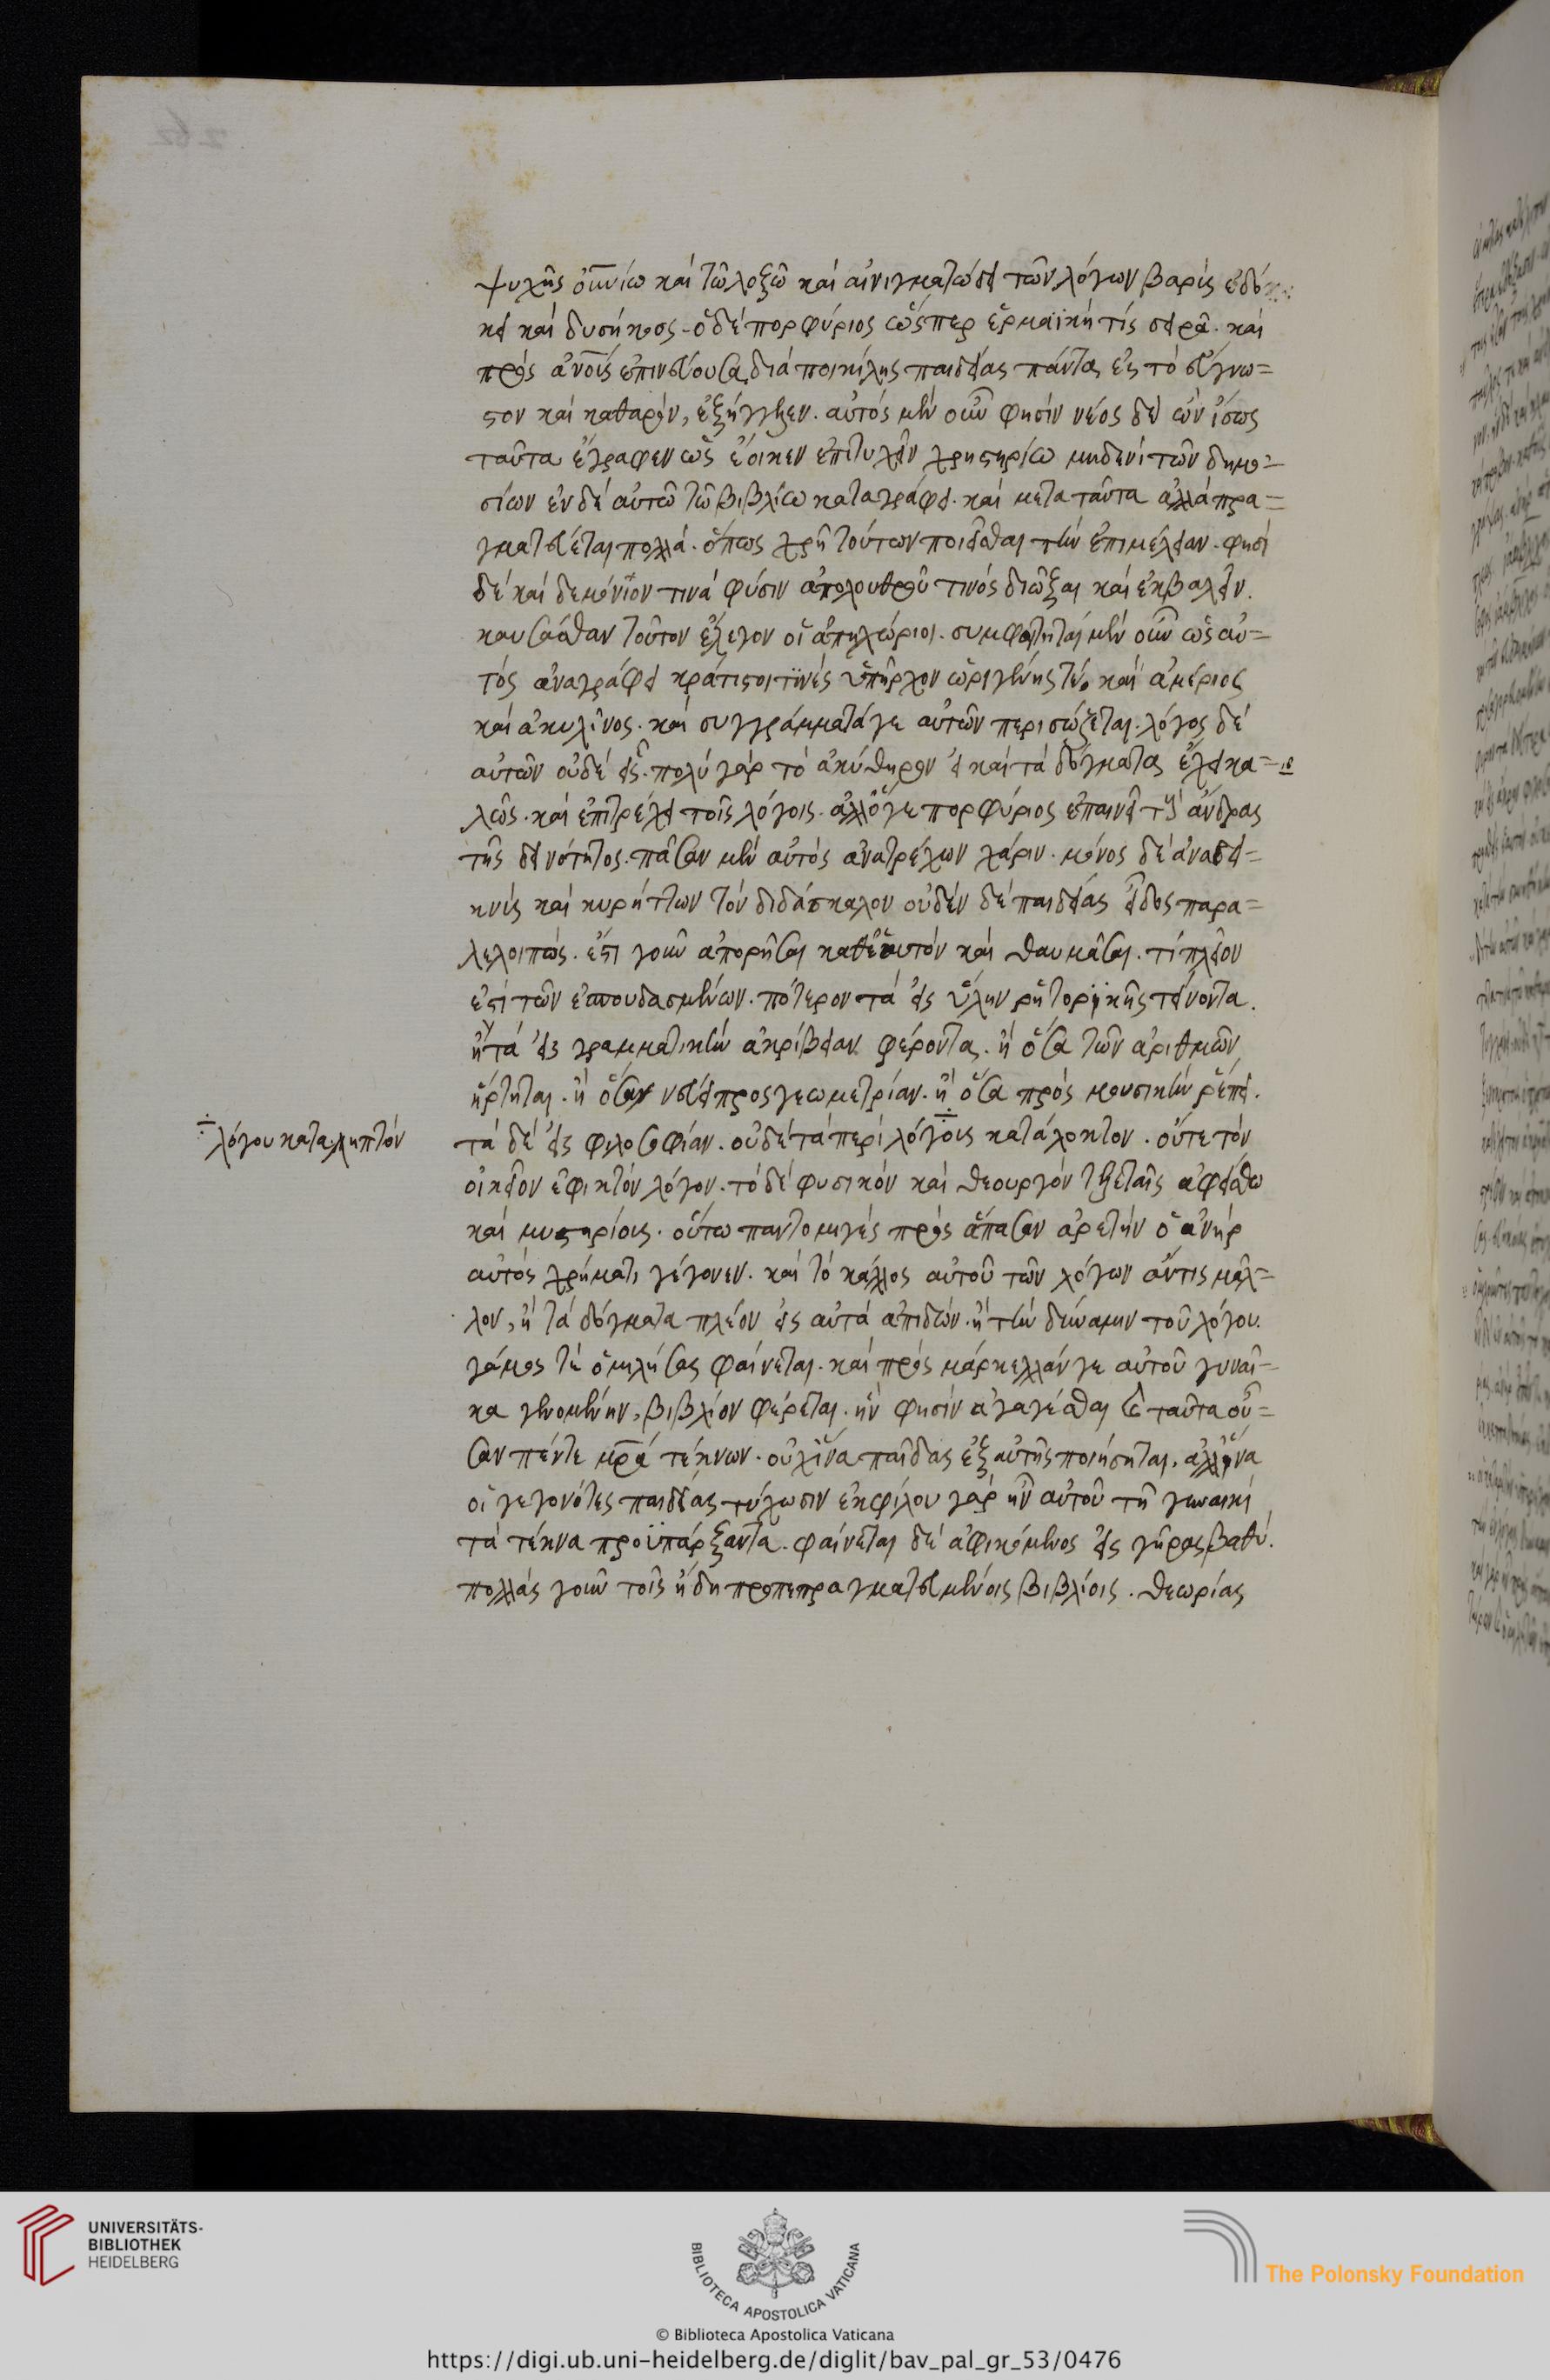 ψυχῆς οὐ̅νίω καὶ τῶ λοξῶ καὶ αἰνιγματώδει τῶν λόγων βαρὺς ἐδό
κει καὶ δυσήκοος. ὁ δὲ πορφύριος ὥσπερ ἑρμαϊκή τις σειρὰ. καὶ
πρὸς ἀν̅ο̅υ̅ς ἐπινεύουσα, διὰ ποικίλης παιδείας πάντα, εἰς τὸ εὔγνω=
στον καὶ καθαρὸν, ἐξήγγελεν. αὐτὸς μὲν οὖν φησὶν νέος δὲ ὢν ἴσως
ταῦτα ἔγραφεν ὡς ἔοικεν ἐπιτυχεῖν χρηστηρίω μηδενὶ τῶν δημο=
σίων ἐν δὲ αὐτῶ τῶ βιβλίω καταγράφει. καὶ μετα ταῦτα ἀλλὰ πρα=
γματεύεται πολλά. ὅπως χρὴ τούτων ποιεῖσθαι τὴν ἐπιμέλειαν. φησὶ
δὲ καὶ δεμόνιον τινὰ φύσιν ἀπολουθροῦ τινὸς διῶξαι καὶ ἐκβαλεῖν.
καυσάθαν τοῦτον ἔλεγον οἱ ἀπηχώριοι. συμφοιτηταὶ μὲν οὖν ὡς αὐ=
τὸς ἀναγράφει κράτιστοι τινὲς ὑπῆρχον ὠριγένης τέ, καὶ ἀμέριος
καὶ ἀκυλῖνος. καὶ συγγράμματά γε αὐτῶν περισώζεται. λόγος δὲ
αὐτῶν οὐδὲ εἷς. πολὺ γὰρ τὸ ἀκύθηρον εἰ καὶ τὰ δόγματα, ἔχει κα=
λῶς. καὶ ἐπιτρέχει τοῖς λόγοις. ἀλλ' ὅγε πορφύριος ἐπαινεῖ τοὺς ἄνδρας
τῆς δεινότητος. πᾶσαν μὲν αὐτὸς ἀνατρέχων χάριν. μόνος δὲ ἀναδει=
κνὺς καὶ κυρήττων τὸν διδάσκαλον οὐδὲν δὲ παιδείας εἶδος παρα=
λελοιπώς. ἔστι γοῦν ἀπορῆσαι καθ' ἑαυτὸν καὶ θαυμᾶσαι. τί πλεῖον
ἐστὶ τῶν ἐσπουδασμένων. πότερον τὰ εἰς ὕλην ῥητορϊκῆς τείνοντα.
ἢ τὰ εἰς γραμματικὴν ἀκρίβειαν φέροντα. ἢ ὅσα τῶν ἀριθμῶν
ἤρτηται. ἢ ὅσαν νεύει προς γεωμετρίαν. ἢ ὅσα πρὸς μουσικὴν ῥέπει.
÷ λόγου καταληπτόν
τὰ δὲ εἰς φιλοσοφίαν. οὐδὲ τὰ περὶ λόγοις κατάλοκτον. οὔτε τὸν
οἰκεῖον ἐφικτὸν λόγον. τὸ δὲ φυσικὸν καὶ θεουργὸν τελεταῖς ἀφείσθω
καὶ μυστηρίοις. οὕτω παντομιγὲς πρὸς ἅπασαν ἀρετὴν ὁ ἀνὴρ
αὐτὸς χρῆματι γέγονεν. καὶ τὸ κάλλος αὐτοῦ τῶν λόγων ἄντις μᾶλ=
λον, ἢ τὰ δόγματα πλέον εἰς αὐτὰ ἀπιδών. ἢ τὴν δύναμιν τοῦ λόγου.
γάμος τὲ ὁμιλήσας φαίνεται. καὶ πρὸς μάρκελλάν γε αὐτοῦ γυναῖ=
κα γενομένην, βιβλίον φέρεται. ἣν φησὶν ἀγαγέσθαι καὶ ταῦτα οὖ=
σαν πέντε μ̅ρ̅α τέκνων. οὐχ ἵνα παῖδας ἐξ αὐτῆς ποιήσηται. ἀλλ' ἵνα
οἱ γεγονότες παιδείας τύχωσιν ἐκφίλου γὰρ ἦν αὐτοῦ τῆ γυναικὶ
τὰ τέκνα προϋπάρξαντα. φαίνεται δὲ ἀφικόμενος εἰς γῆρας βαθύ.
πολλὰς γοῦν τοῖς ἤδη προπεπραγματευμένοις βιβλίοις. θεωρίας
UNIVERSITÄTS-
BIBLIOTHEK
HEIDELBERG
BIBLIOTECA APOSTOLICA VATICANA
The Polonsky Foundation
© Biblioteca Apostolica Vaticana
https://digi.ub.uni-heidelberg.de/diglit/bav_pal_gr_53/0476